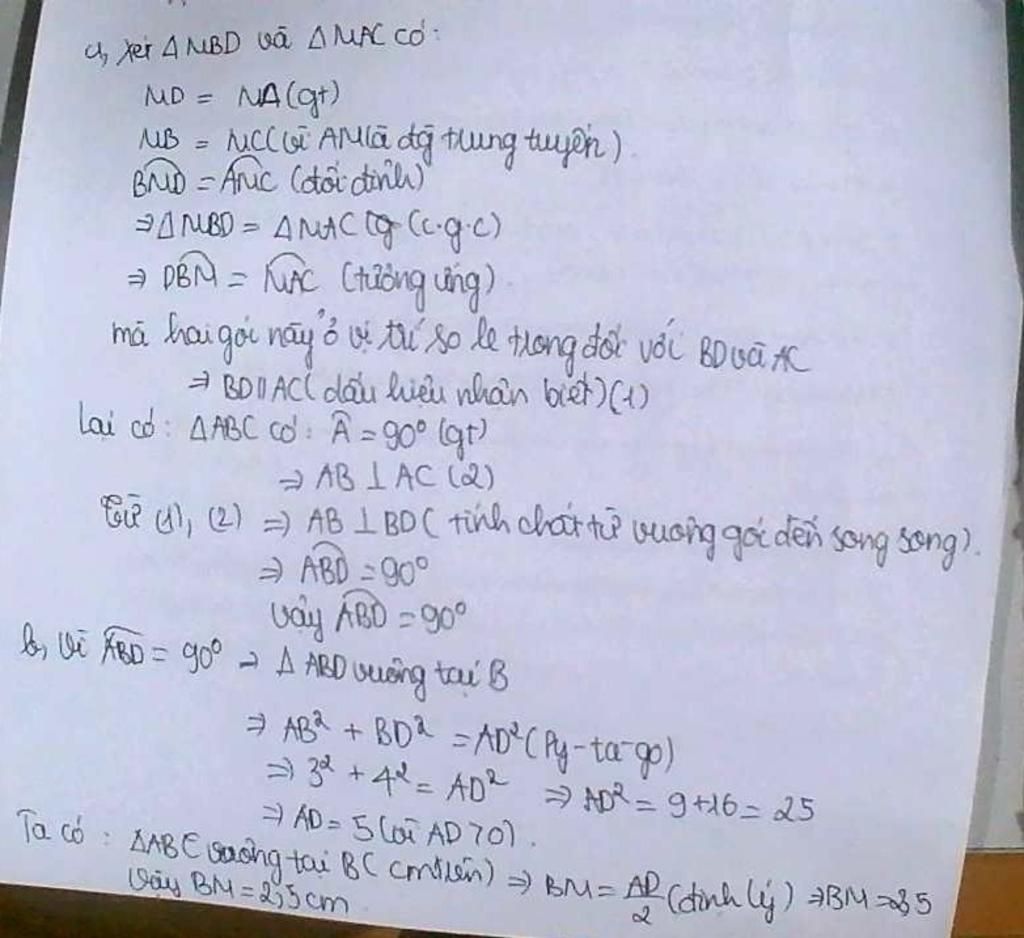 a, xét ΔMBD và ΔMAC có:
MD = MA (gt)
MB = MC (vì AM là đg trung tuyến)
BMD = AMC (đối đỉnh)
⇒ ΔMBD = ΔMAC (c.g.c)
⇒ DBM = MAC (tương ứng)
mà hai góc này ở vị trí so le trong đối với BD và AC
⇒ BD // AC (dấu hiệu nhận biết) (1)
Lại có: ΔABC có: Â = 90° (gt)
⇒ AB ⊥ AC (2)
Từ (1), (2) ⇒ AB ⊥ BD (tính chất từ vuông góc đến song song).
⇒ ABD = 90°
Vậy ABD = 90°
b, Vì ABD = 90° → Δ ABD vuông tại B
⇒ AB² + BD² = AD² (Py-ta-go)
⇒ 3² + 4² = AD² ⇒ AD² = 9+16 = 25
⇒ AD = 5 (vì AD > 0).
Ta có : ΔABC vuông tại B (cm trên) ⇒ BM = AD/2 (định lý) ⇒ BM = 2,5
Vậy BM = 2,5 cm